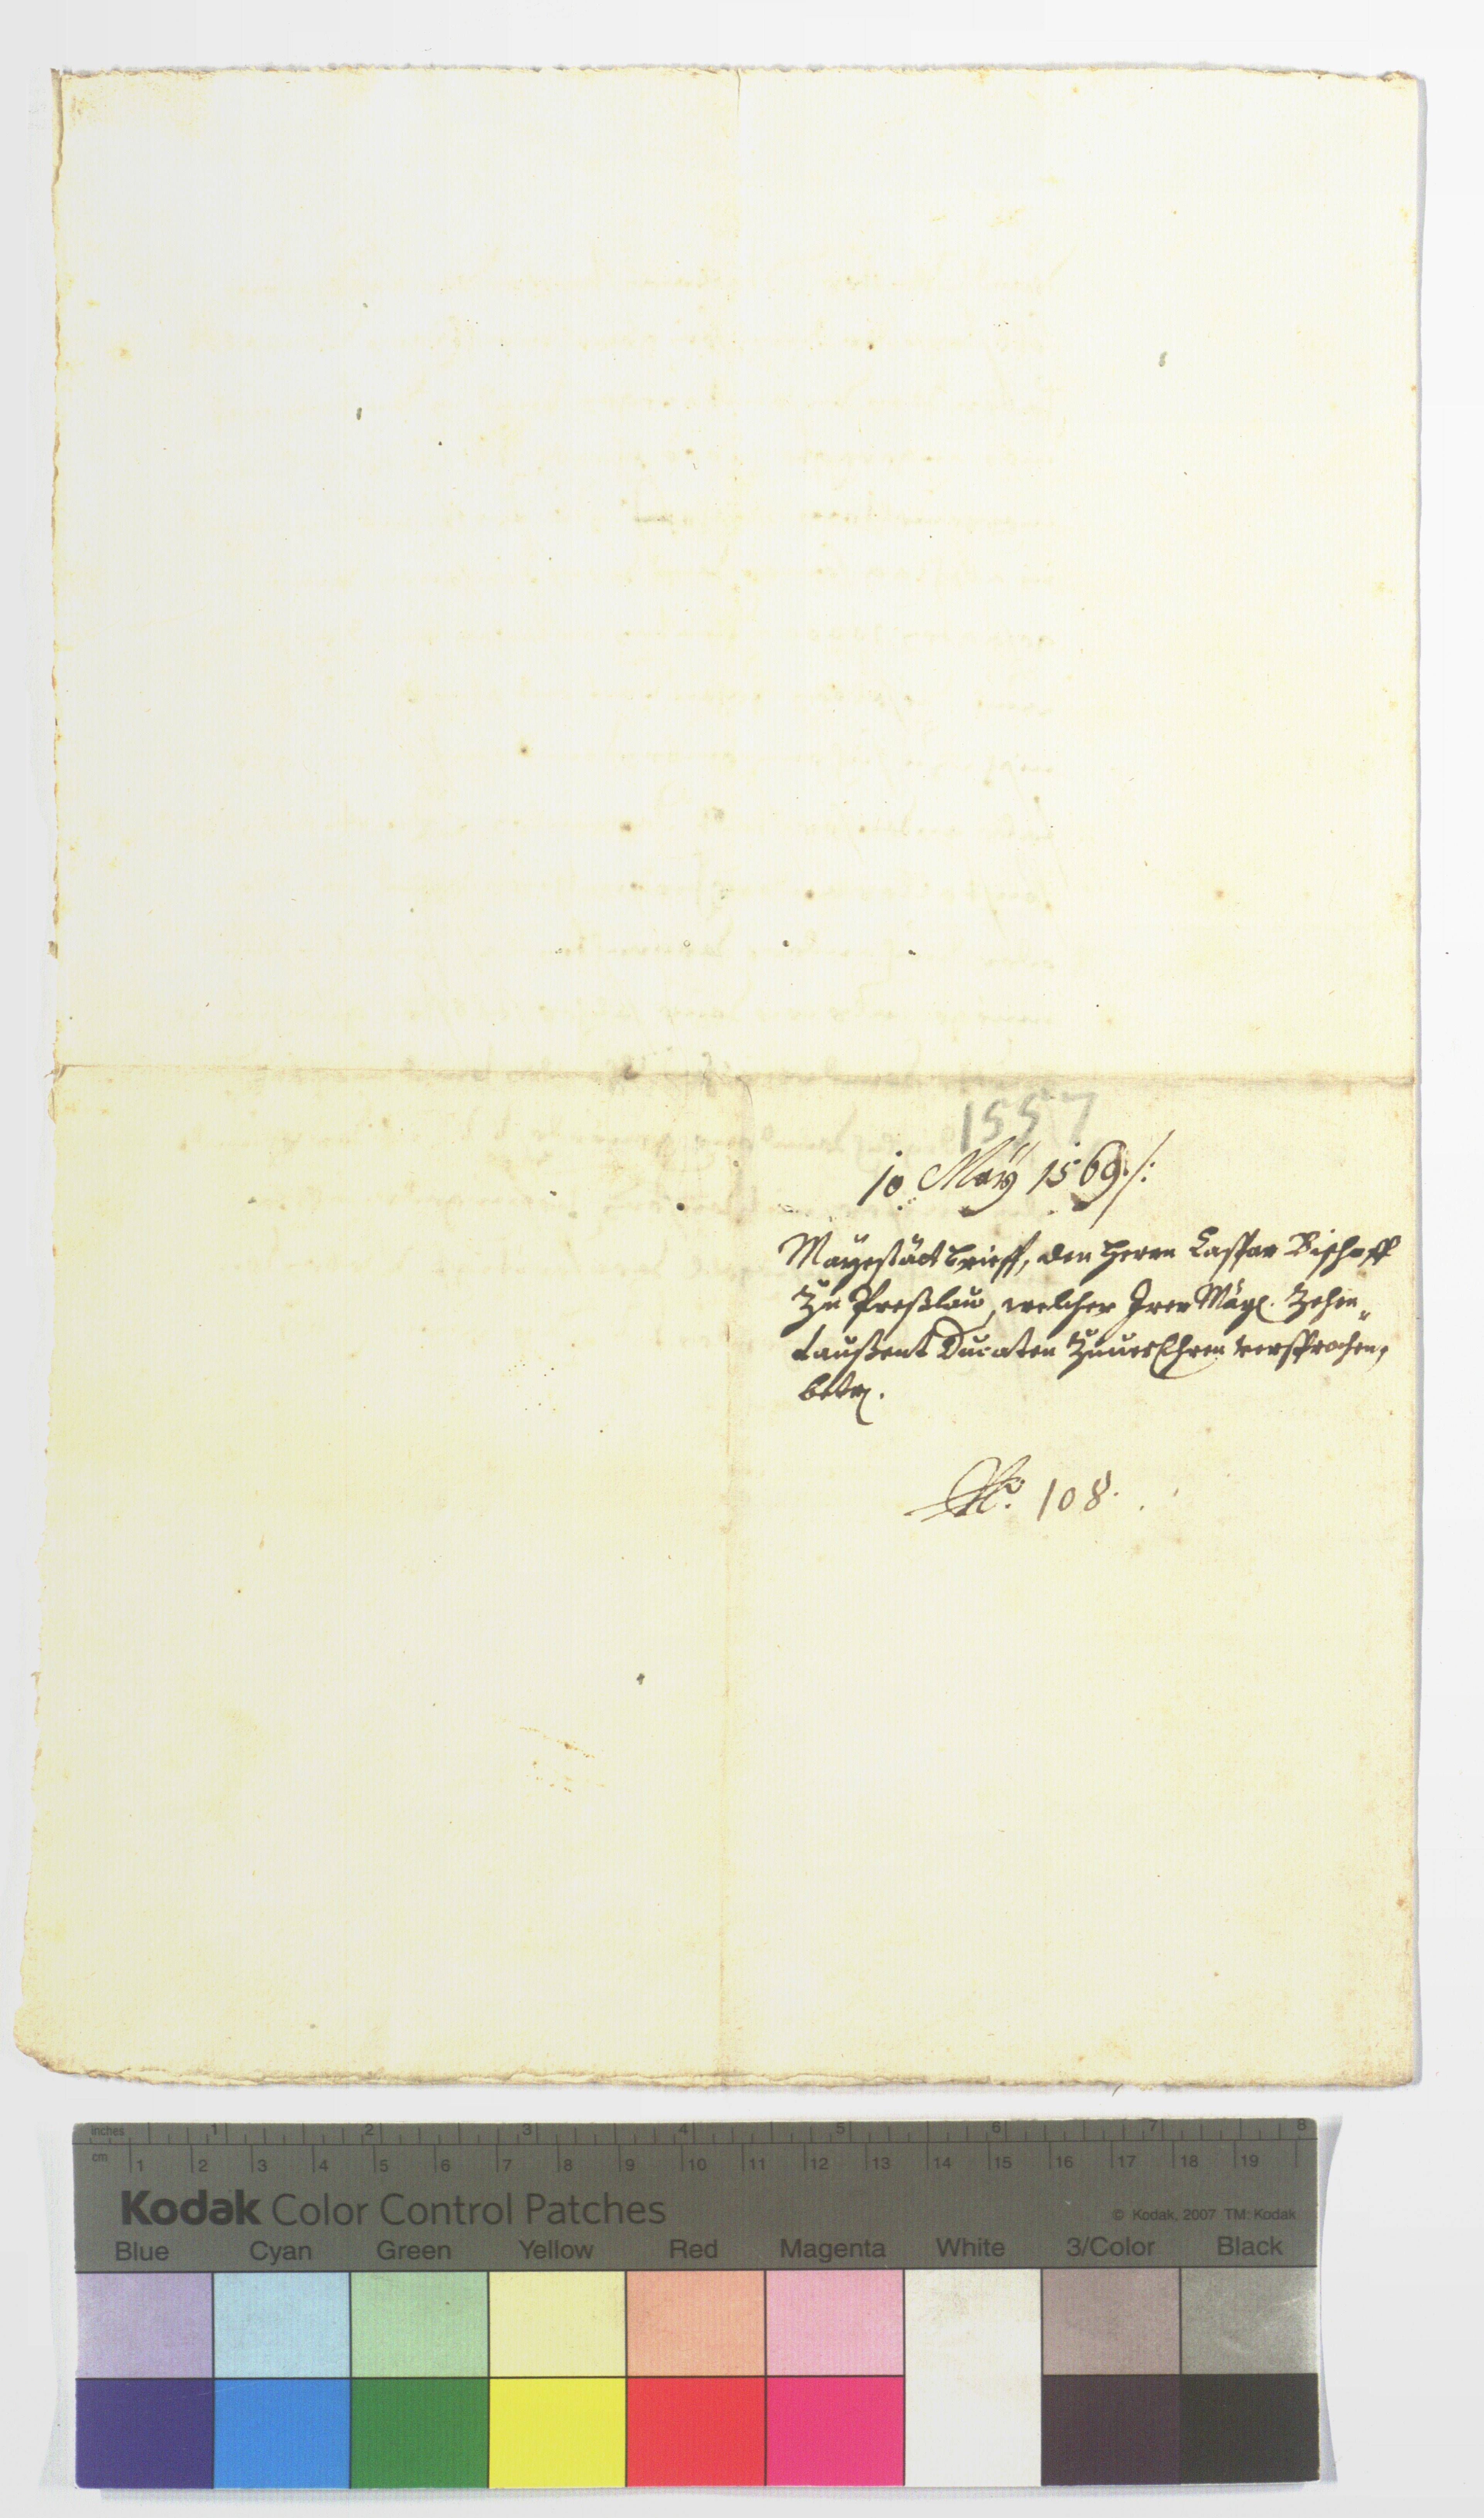 1557
10 Maÿ 1569 ./.
Mayestät brieff, den Herrn Caspar Bischoff
Zu Preßlaw, welcher Irer Mayt. Zehen„
taußent Ducaten Zuuerehren versprochen,
betr.
No. 108.
inches 1 2 3 4 5 6 7 8
cm 1 2 3 4 5 6 7 8 9 10 11 12 13 14 15 16 17 18 19
Kodak Color Control Patches
© Kodak, 2007 TM: Kodak
Blue Cyan Green Yellow Red Magenta White 3/Color Black